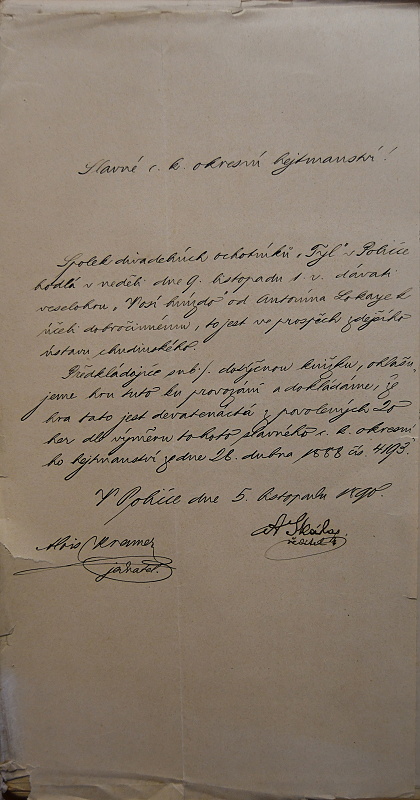 Slavné c. k. okresní hejtmanství!
Spolek divadelních ochotníků „Tyl" v Polici
hodlá v neděli dne 9. listopadu t. r. dávati
veselohru „Vosí hnízdo od Antonína Lokaye k
účeli dobročinnému, to jest ve prospěch zdejšího
ústavu chudinského.
Předkládajíce sub /. dotyčnou knížku, ohlašu-
jeme hru tuto ku provozání a dokládáme, že
hra tato jest devatenáctá z povolených 20
her dle výměru tohoto slavného c. k. okresní-
ho hejtmanství ze dne 28. dubna 1888 čís. 4193.
V Polici dne 5. listopadu 1890.
Alois Kramer
jednatel.